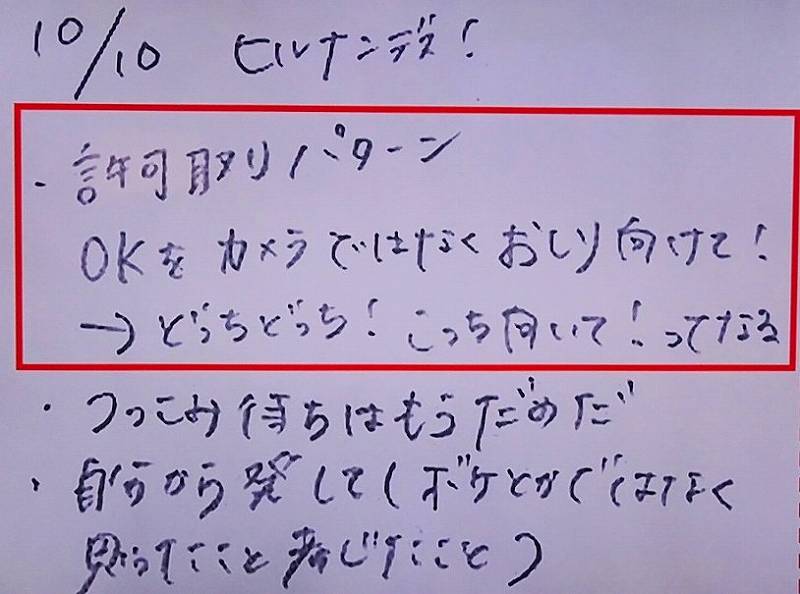 10/10 ヒルナンデス!
・許可取りパターン
OKをカメラではなくおしり向けて!
→どっちどっち!こっち向いて!ってなる
・つっこみ待ちはもうだめだ
・自分から発して(ボケとかではなく
思ったこと感じたこと)